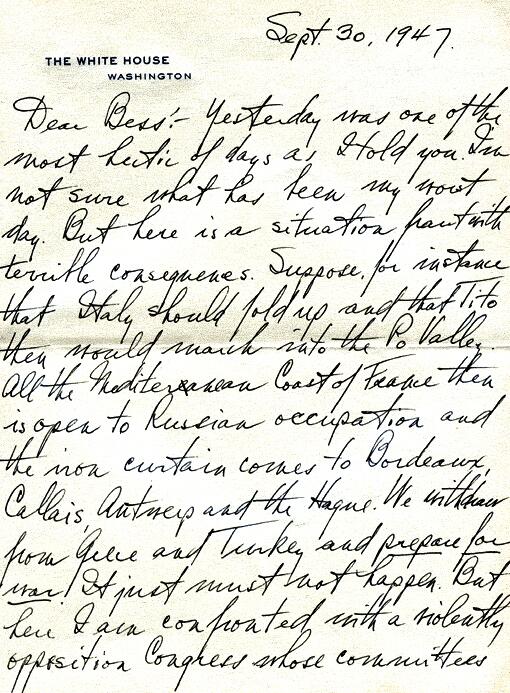 Sept. 30, 1947.
THE WHITE HOUSE
WASHINGTON
Dear Bess:- Yesterday was one of the
most hectic of days as I told you. I'm
not sure what has been my worst
day. But here is a situation fraut with
terrible consequenes. Suppose, for instance
that Italy should fold up and that Tito
then would march into the Po Valley.
All the Mediterranean Coast of France then
is open to Russian occupation and
the iron curtain comes to Bordeaux,
Callais, Antwerp and the Hague. We withdraw
from Greece and Turkey and prepare for
war. It just must not happen. But
here I am confronted with a violently
opposition Congress whose committees